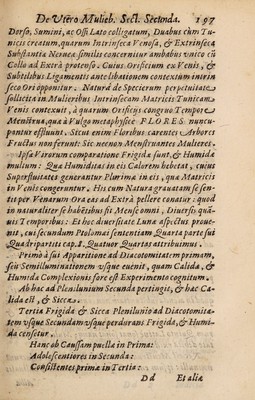 De Utero Mulieb. Sect. Secunda. 197
Dorso, Summi, ac Ossi Lato colligatum, Duabus cum Tu-
nicis creatum, quarum Intrinseca Venosa, & Extrinseca
Substantia Nervea similis concernitur ambabus unico cũ
Collo ad Extrà protenso. Cuius Orificium ex Venis, &
Subtilibus Ligamentis ante libationem contextum intrin
seco Ori opponitur. Natura de Specierum perpetuitate
sollicita in Mulieribus Intrinsecam Matricis Tunicam
Venis contexuit, à quarum Orificijs congruo Tempore
Menstrua, quæ à Vulgo metaphysicè FLORES nuncu-
pantur effluunt. Sicut enim Floribus carentes Arbores
Fructus non ferunt: Sic nec non Menstruantes Mulieres.
Ipsæ Virorum comparatione Frigidæ sunt, & Humidæ
multum: Quæ Humiditas in eis Calorem hebetat, cuius
Superfluitates generantur Plurimæ in eis, quæ Matricis
in Venis congeruntur. His cum Natura gravatam se sen-
tit per Venarum Ora eas ad Extrà pellere conatur: quod
in naturaliter se habētibus fit Mense omni, Diversis quā-
vis Temporibus: Et hoc diversitate Lunæ aspectus proue-
nit, cui secundum Ptolomæi sententiam Quarta parte sui
Quadripartiti cap. 8. Quatuor Quartas attribuimus.
Primò à sui Apparitione ad Diacotomitatem primam,
seu Semiilluminationem usque evenit, quam Calida, &
Humida Complexionis fore est Experimento cognitum.
Ab hac ad Plenilunium Secunda pertingit, & hæc Ca-
lida est, & Sicca.
Tertia Frigida & Sicca Plenilunio ad Diacotomita-
tem usque Secundam usque perdurans Frigida, & Humi-
da censetur.
Hanc ob Caussam puella in Prima:
Adolescentiores in Secunda:
Consistentes prima in Tertia:
Dd Et aliæ